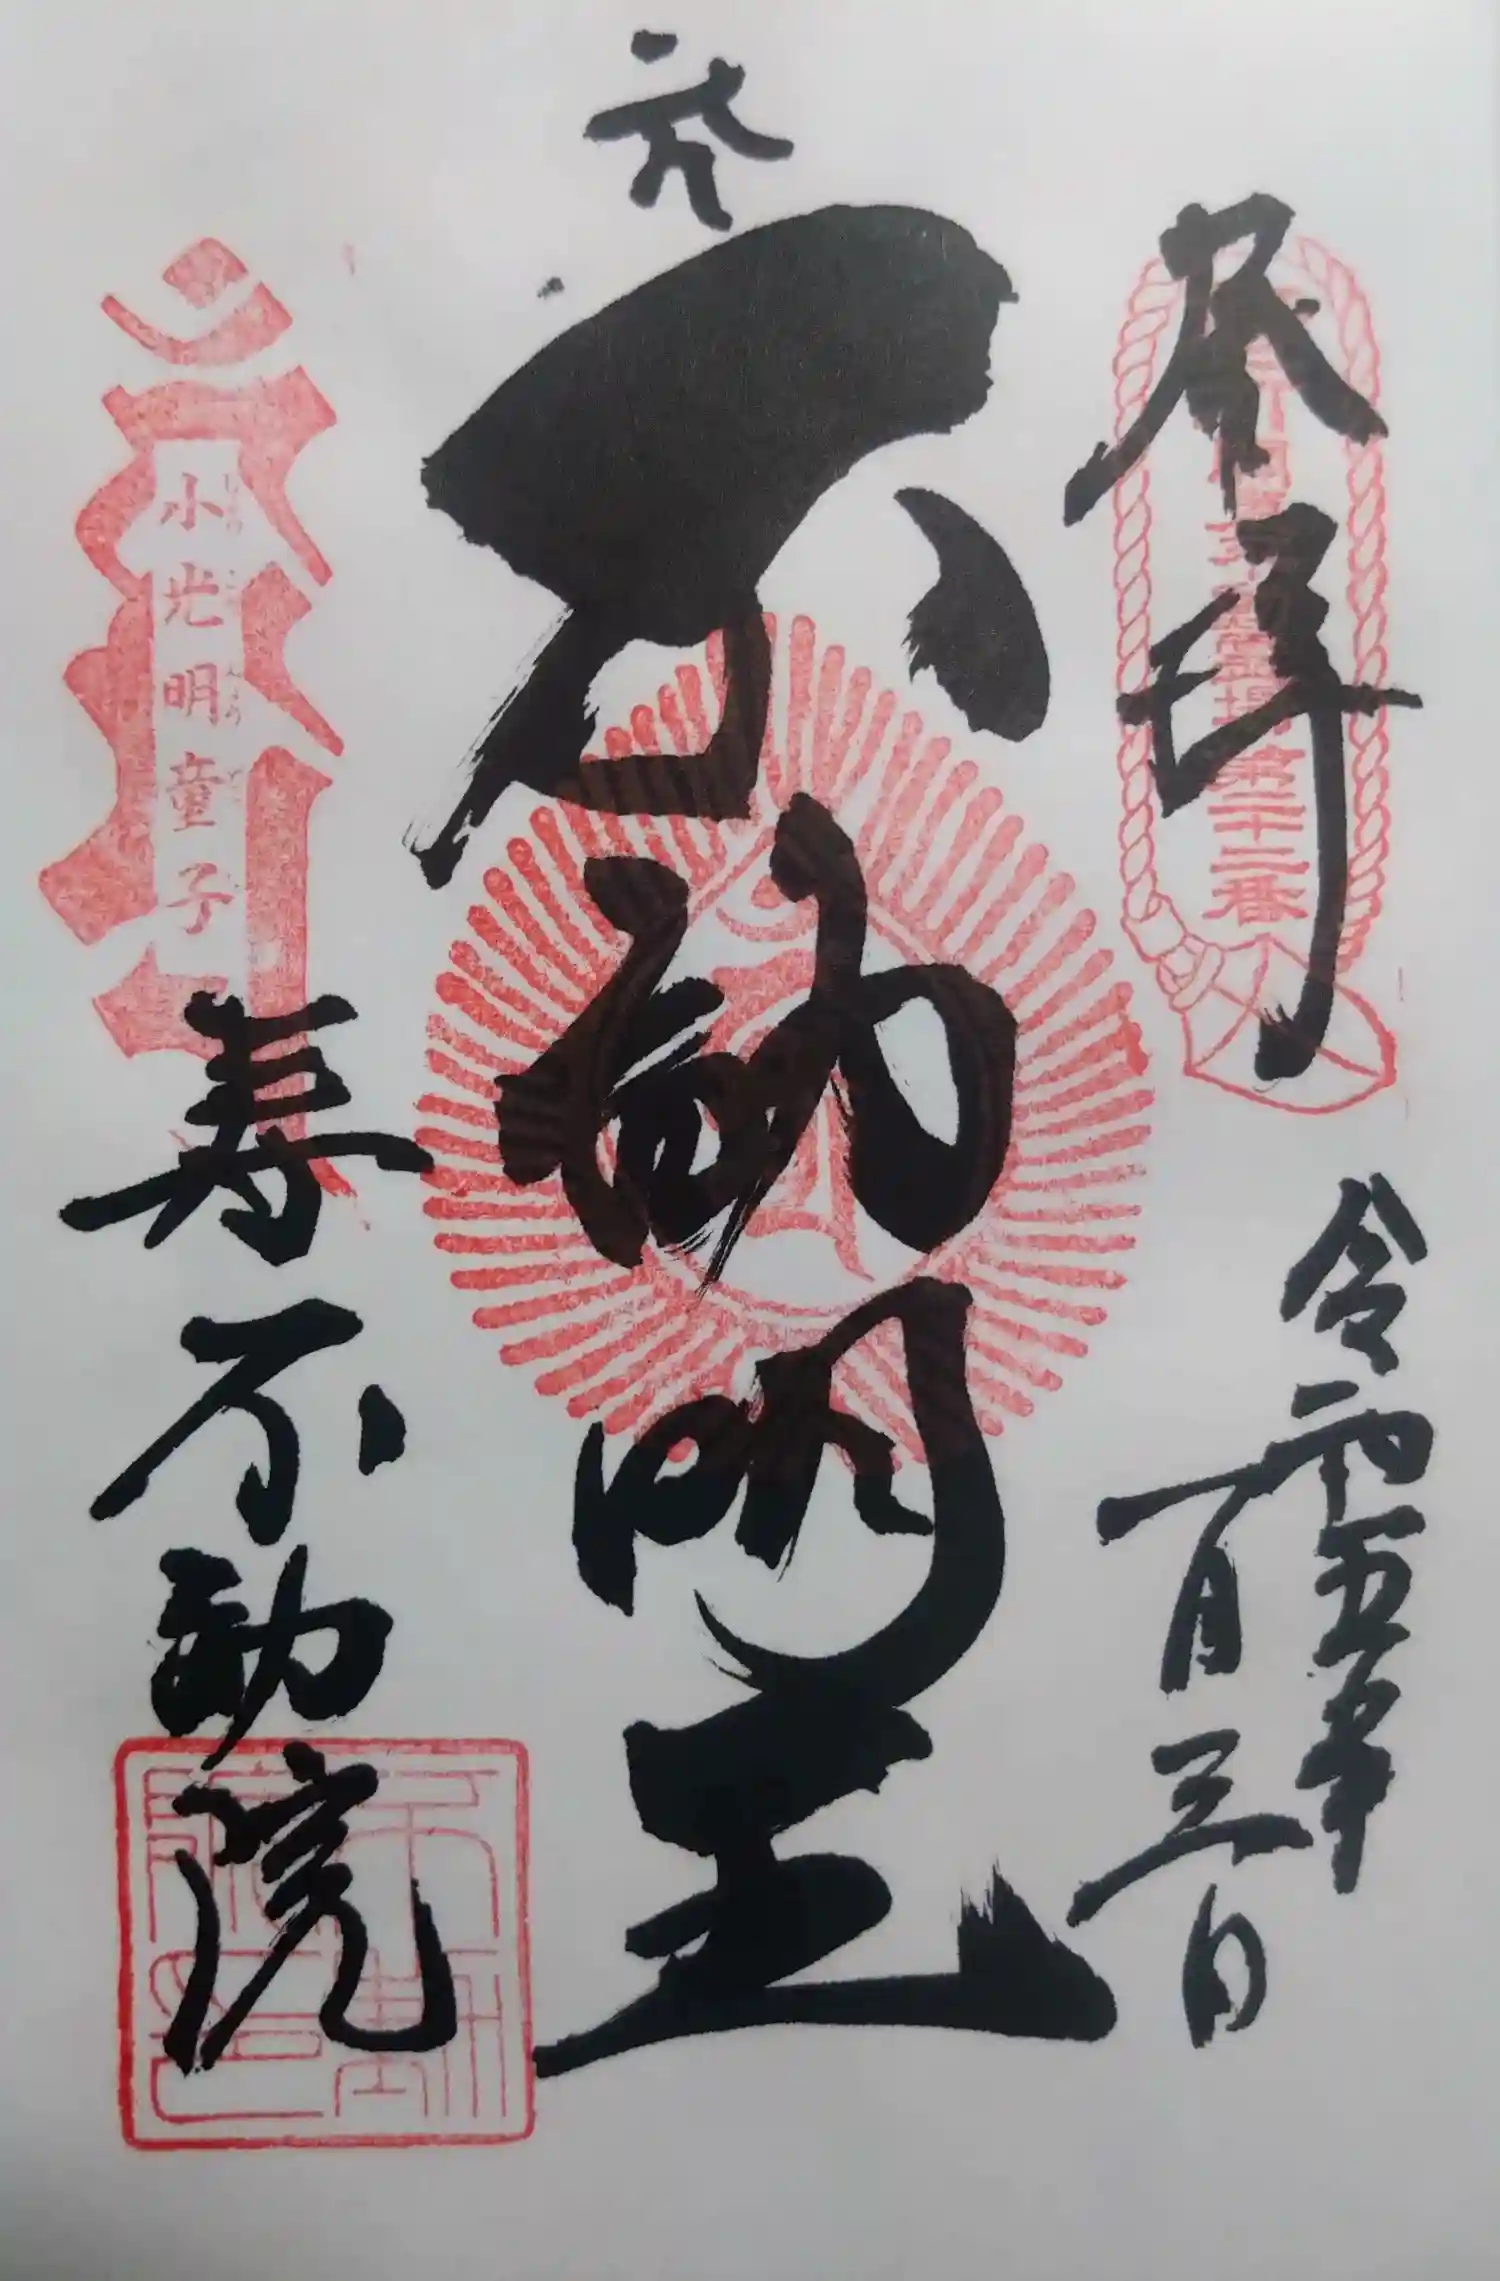 奉拝
霊場第二十二番
令和五年
一月三日
不動明王
小光明童子
寿不動院
不動
院印